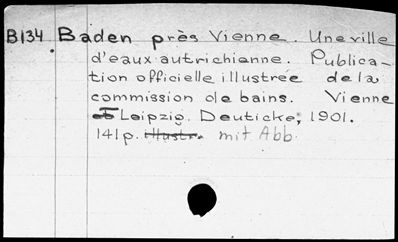 B134 Baden près Vienne. Une ville
d'eaux autrichienne. Publica-
tion officielle illustrée de la
commission de bains. Vienne
et Leipzig. Deuticke, 1901.
141p. illustr. mit Abb.